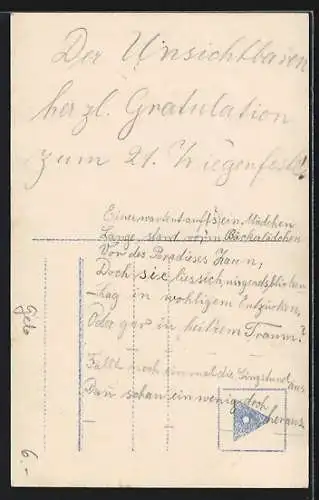 Der Unsichtbaren
herzl. Gratulation
zum 21. Wiegenfest!
Einer wartent auf's ein Mädchen
Lange stand vor'm Bäckerlädchen
Vor des Paradieses Zaun,
Doch sie liess sich nirgends blicken
Lag in wohligem Entzücken,
Oder gar in heit'rem Traum?
Fällt noch einmal die Singstund aus
Dann schau ein wenig doch
heraus
Gelo
6.-